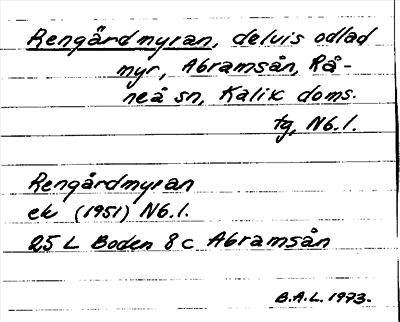 Rengårdmyran, delvis odlad
myr, Abramsån, Rå-
neå sn, Kalix doms.
tg, Nb.l.
Rengårdmyran
ek (1951) Nb.l.
25 L Boden 8c Abramsån
B.A.L. 1973.